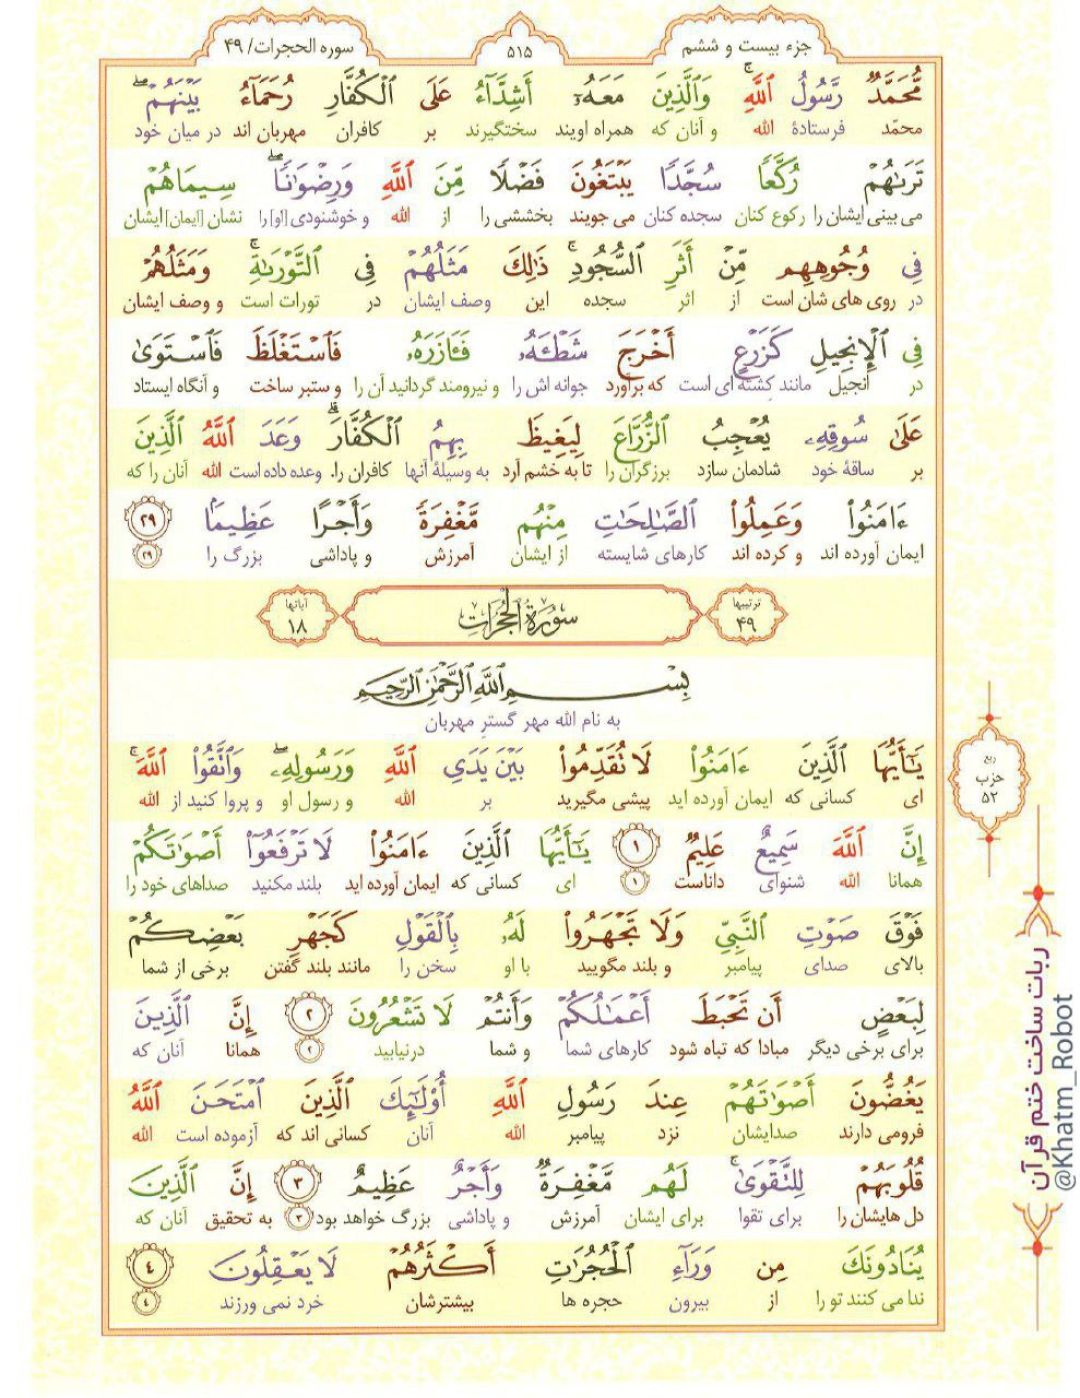 جزء بیست و ششم
۵۱۵
سوره الحجرات/ ۴۹
مُّحَمَّدٌ رَّسُولُ ٱللَّهِۚ وَٱلَّذِينَ مَعَهُۥٓ أَشِدَّآءُ عَلَى ٱلْكُفَّارِ رُحَمَآءُ بَيْنَهُمْۖ
محمّد فرستادهٔ الله و آنان که همراه اویند سختگیرند بر کافران مهربان اند در میان خود
تَرَىٰهُمْ رُكَّعًا سُجَّدًا يَبْتَغُونَ فَضْلًا مِّنَ ٱللَّهِ وَرِضْوَٰنًاۖ سِيمَاهُمْ
می بینی ایشان را رکوع کنان سجده کنان می جویند بخششی را از الله و خوشنودی [او] را نشان [ایمان] ایشان
فِى وُجُوهِهِم مِّنْ أَثَرِ ٱلسُّجُودِۚ ذَٰلِكَ مَثَلُهُمْ فِى ٱلتَّوْرَىٰةِۚ وَمَثَلُهُمْ
در روی های شان است از اثر سجده این وصف ایشان در تورات است و وصف ایشان
فِى ٱلْإِنجِيلِ كَزَرْعٍ أَخْرَجَ شَطْـَٔهُۥ فَـَٔازَرَهُۥ فَٱسْتَغْلَظَ فَٱسْتَوَىٰ
در انجیل مانند کِشتهٔ ای است که برآورد جوانه اش را و نیرومند گردانید آن را و ستبر ساخت و آنگاه ایستاد
عَلَىٰ سُوقِهِۦ يُعْجِبُ ٱلزُّرَّاعَ لِيَغِيظَ بِهِمُ ٱلْكُفَّارَۗ وَعَدَ ٱللَّهُ ٱلَّذِينَ
بر ساقهٔ خود شادمان سازد برزگران را تا به خشم آرد به وسیلهٔ آنها کافران را. وعده داده است الله آنان را که
ءَامَنُوا۟ وَعَمِلُوا۟ ٱلصَّٰلِحَٰتِ مِنْهُم مَّغْفِرَةً وَأَجْرًا عَظِيمًۢا ۲۹
ایمان آورده اند و کرده اند کارهای شایسته از ایشان آمرزش و پاداشی بزرگ را ۲۹
ترتیبها ۴۹
سُورَةُ الحُجُرَاتِ
آیاتها ۱۸
بِسْمِ ٱللَّهِ ٱلرَّحْمَٰنِ ٱلرَّحِيمِ
به نام الله مهر گستر مهربان
يَٰٓأَيُّهَا ٱلَّذِينَ ءَامَنُوا۟ لَا تُقَدِّمُوا۟ بَيْنَ يَدَىِ ٱللَّهِ وَرَسُولِهِۦۖ وَٱتَّقُوا۟ ٱللَّهَۚ
ای کسانی که ایمان آورده اید پیشی مگیرید بر الله و رسول او و پروا کنید از الله
إِنَّ ٱللَّهَ سَمِيعٌ عَلِيمٌ ۱ يَٰٓأَيُّهَا ٱلَّذِينَ ءَامَنُوا۟ لَا تَرْفَعُوٓا۟ أَصْوَٰتَكُمْ
همانا الله شنوای داناست ۱ ای کسانی که ایمان آورده اید بلند مکنید صداهای خود را
فَوْقَ صَوْتِ ٱلنَّبِىِّ وَلَا تَجْهَرُوا۟ لَهُۥ بِٱلْقَوْلِ كَجَهْرِ بَعْضِكُمْ
بالای صدای پیامبر و بلند مگویید با او سخن را مانند بلند گفتن برخی از شما
لِبَعْضٍ أَن تَحْبَطَ أَعْمَٰلُكُمْ وَأَنتُمْ لَا تَشْعُرُونَ ۲ إِنَّ ٱلَّذِينَ
برای برخی دیگر مبادا که تباه شود کارهای شما و شما درنیابید ۲ همانا آنان که
يَغُضُّونَ أَصْوَٰتَهُمْ عِندَ رَسُولِ ٱللَّهِ أُو۟لَٰٓئِكَ ٱلَّذِينَ ٱمْتَحَنَ ٱللَّهُ
فرومی دارند صدایشان نزد پیامبر الله آنان کسانی اند که آزموده است الله
قُلُوبَهُمْ لِلتَّقْوَىٰۚ لَهُم مَّغْفِرَةٌ وَأَجْرٌ عَظِيمٌ ۳ إِنَّ ٱلَّذِينَ
دل هایشان را برای تقوا برای ایشان آمرزش و پاداشی بزرگ خواهد بود ۳ به تحقیق آنان که
يُنَادُونَكَ مِن وَرَآءِ ٱلْحُجُرَٰتِ أَكْثَرُهُمْ لَا يَعْقِلُونَ ۴
ندا می کنند تو را از بیرون حجره ها بیشترشان خرد نمی ورزند ۴
ربع
حزب
۵۲
ربات ساخت ختم قرآن
@Khatm_Robot